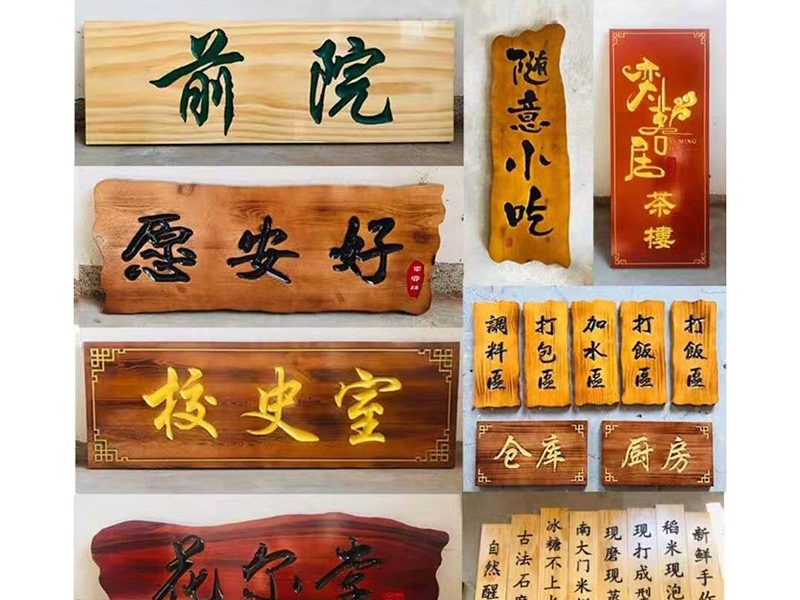 前院
愿安好
校史室
随意小吃
居
茶樓
MING
調料區
打包區
加水區
打飯區
打飯區
仓库
厨房
新鲜手作
稻米现泡
现打成型
现磨现蒸
南大门米
冰糖不上
古法石
自然醒